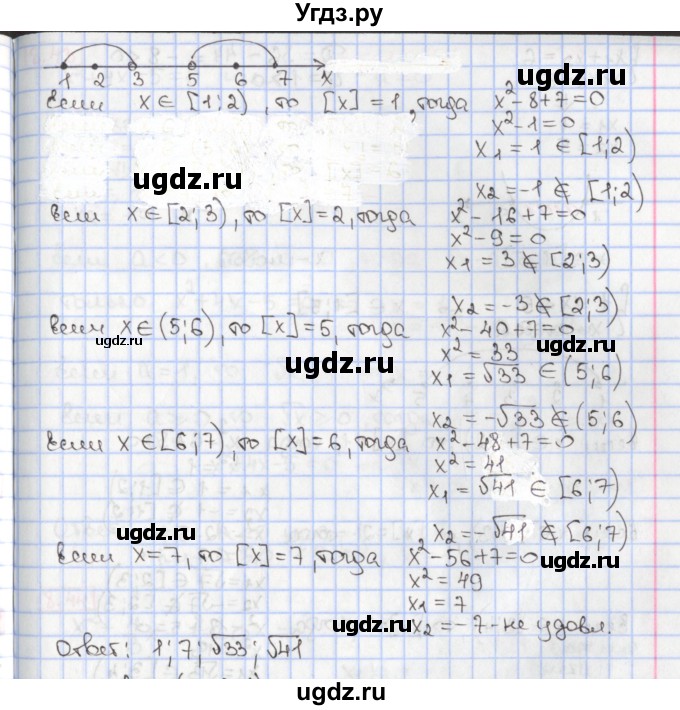 Угдз.ру
1 2 3 5 6 7 x
ugdz.ru
Если x ∈ [1;2), то [x] = 1, тогда x² - 8 + 7 = 0
x² - 1 = 0
x₁ = 1 ∈ [1;2)
ugdz.ru
x₂ = -1 ∉ [1;2)
Если x ∈ [2;3), то [x] = 2, тогда x² - 16 + 7 = 0
x² - 9 = 0
x₁ = 3 ∉ [2;3)
ugdz.ru
x₂ = -3 ∉ [2;3)
Если x ∈ (5;6), то [x] = 5, тогда x² - 40 + 7 = 0
ugdz.ru ugdz.ru
x² = 33
ugdz.ru
x₁ = √33 ∈ (5;6)
x₂ = -√33 ∉ (5;6)
Если x ∈ [6;7), то [x] = 6, тогда x² - 48 + 7 = 0
x² = 41
ugdz.ru
x₁ = √41 ∈ [6;7)
ugdz.ru
x₂ = -√41 ∉ [6;7)
Если x = 7, то [x] = 7, тогда x² - 56 + 7 = 0
ugdz.ru
x² = 49
x₁ = 7
x₂ = -7 - не удовл.
Ответ: 1; 7; √33; √41
ugdz.ru
ugdz.ru